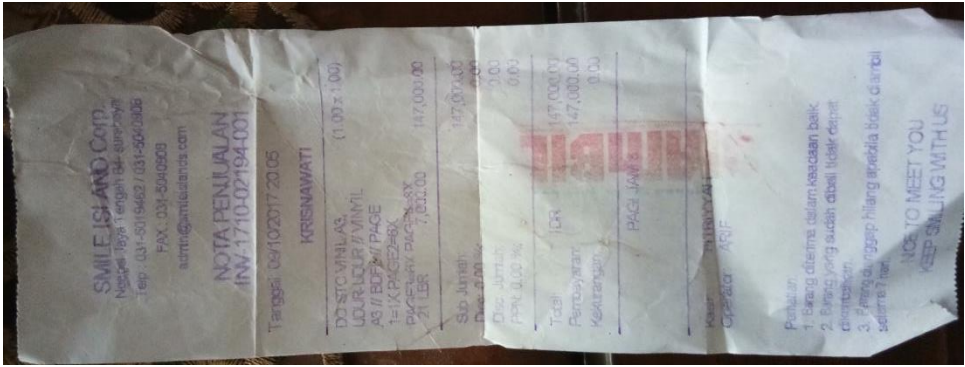 SMILE ISLAND Corp.
Ngagel Jaya Tengah 84 surabaya
Telp : 031-5019462 / 031-5040908
FAX : 031-5040908
admin@smileislands.com
NOTA PENJUALAN
INV-1710-02194-001
Tanggal: 09/10/2017 20:05
KRISNAWATI
(1.00 x 1.00)
A3 // BDFX // PAGE
21 LBR 7,000.00 147,000.00
Sub Jumlah 147,000.00
Disc 0.00 % 0.00
Disc Jumlah 0.00
PPN 0.00 % 0.00
Total IDR 147,000.00
Pembayaran 147,000.00
Kekurangan 0.00
Kasir
Operator ARIF
Perhatian
1. Barang diterima dalam keadaan baik
2. Barang yang sudah dibeli tidak dapat
dikembalikan
3. Barang dianggap hilang apabila tidak diambil
selama 7 hari
NICE TO MEET YOU
KEEP SMILING WITH US